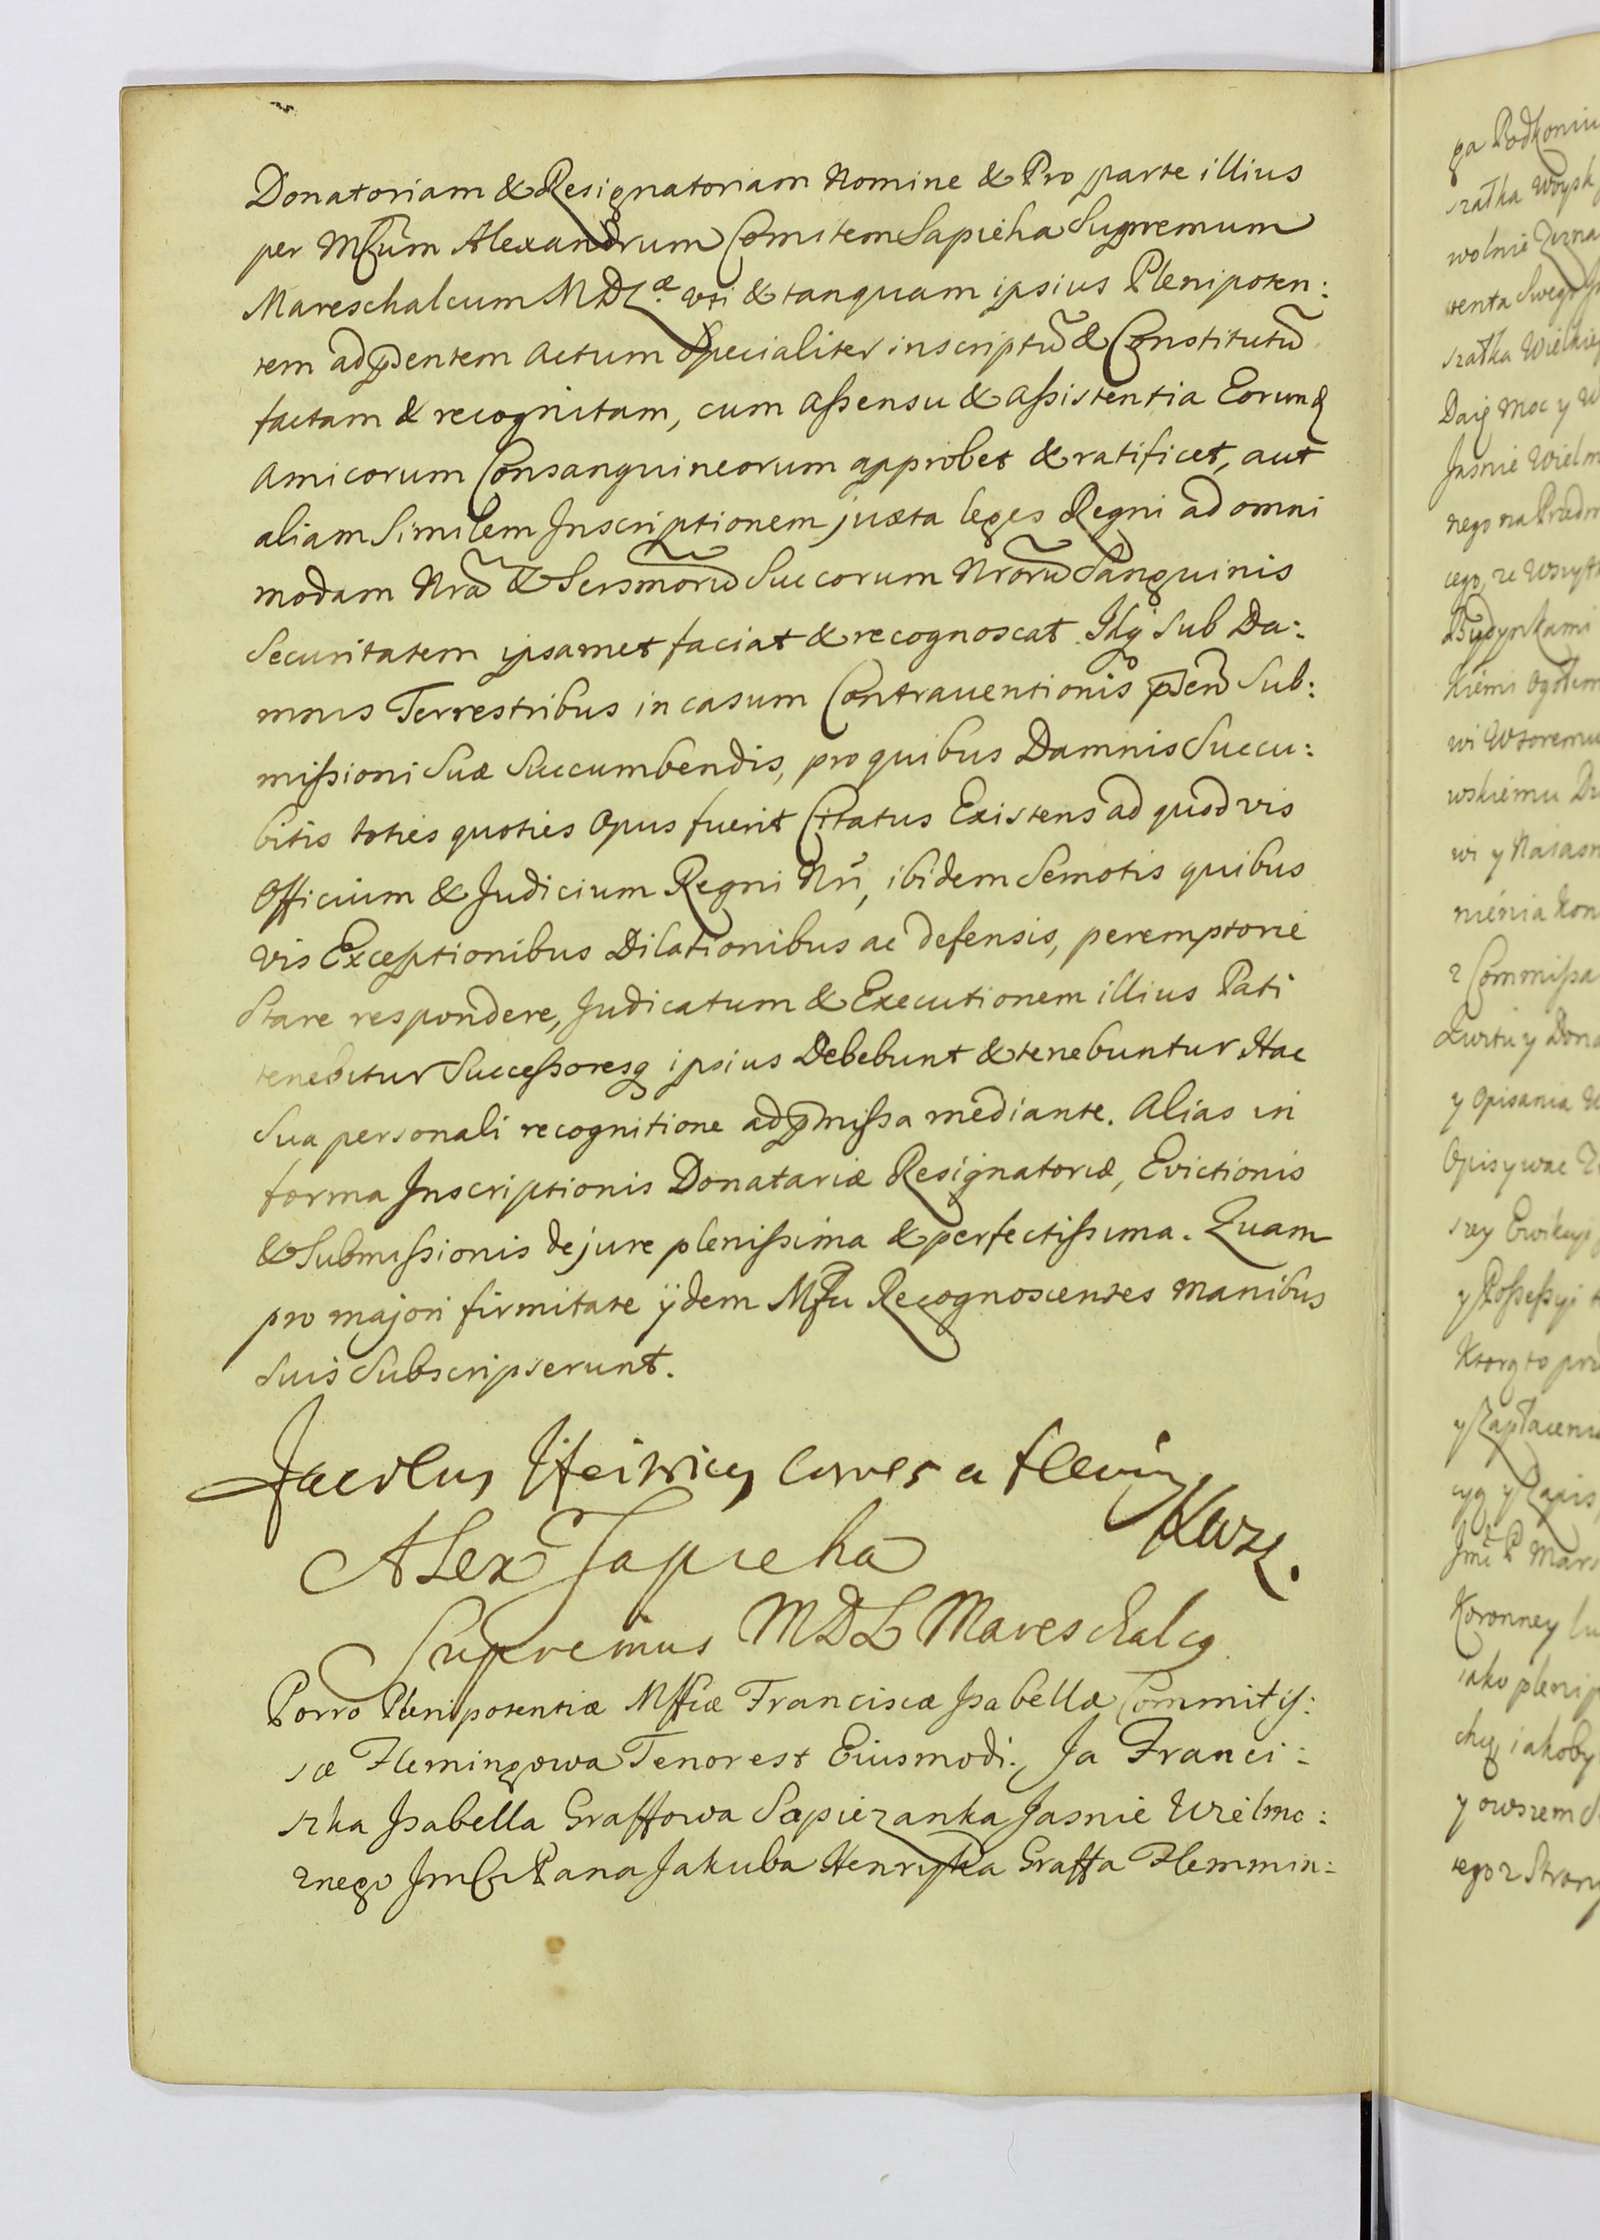 Donatoriam & Resignatoriam Nomine & Pro parte illius
per Mfcum Alexandrum Comitem Sapieha Supremum
Mareschalcum M D Læ uti & tanquam ipsius Plenipoten:
tem ad pntem actum Specialiter inscriptu & Constitutu
factam & recognitam, cum assensu & assistentia Eorund
amicorum Consanguineorum approbet & ratificet, aut
aliam Similem Inscriptionem juxta leges Regni ad omni
modam Nra & Sersmoru Succorum Nroru Sanguinis
Securitatem ipsamet faciat & recognoscat. Idq Sub Da:
mnis Terrestribus in casum Contrauentionis pnti Sub:
missioni Suæ Succumbendis, pro quibus Damnis Succu:
bitis toties quoties Opus fuerit Citatus Existens ad quodvis
Officium & Judicium Regni Nri, ibidem Semotis quibus
vis Exceptionibus Dilationibus ac defensis, peremptorie
Stare respondere, Judicatum & Executionem illius Pati
tenebitur Successoresq ipsius Debebunt & tenebuntur Hac
Sua personali recognitione ad pmissa mediante. Alias in
forma Inscriptionis Donatariæ Resignatoriæ, Evictionis
& Submissionis de jure plenissima & perfectissima. Quam
pro majori firmitate ijdem Mfci Recognoscentes manibus
Suis Subscripserunt.
Jacobus Heinricus Comes a Fleming
Alex Sapieha
Supremus M D L Mareschalcq
Porro Plenipotentiæ Mfficæ Franciscæ Isabellæ Commitis:
sæ Flemingowa Tenor est Eiusmodi. Ja Franci:
szka Isabella Graffowa Sapiezanka Jasnie Wielmo:
znego Jmci Pana Jakuba Henryka Graffa Flemmin:
ga Podkoniu
wolnie
szałka Wielkie
Daię Moc y W
Jasnie Wielm
nego na
cego, ze
Budynkami
Kiemi
wi
wskiemu
wi y Naiasn
nienia Kon
z Commissa
y Dona
y Opisania
Opisywac
szey Ewikcyi
y Possessyi
Ktorą to
y Zapłaceni
cyą y Zapis
Jmc P Mars
Koronney
iako plenip
chcę iakoby
y owszem
tego z Strony